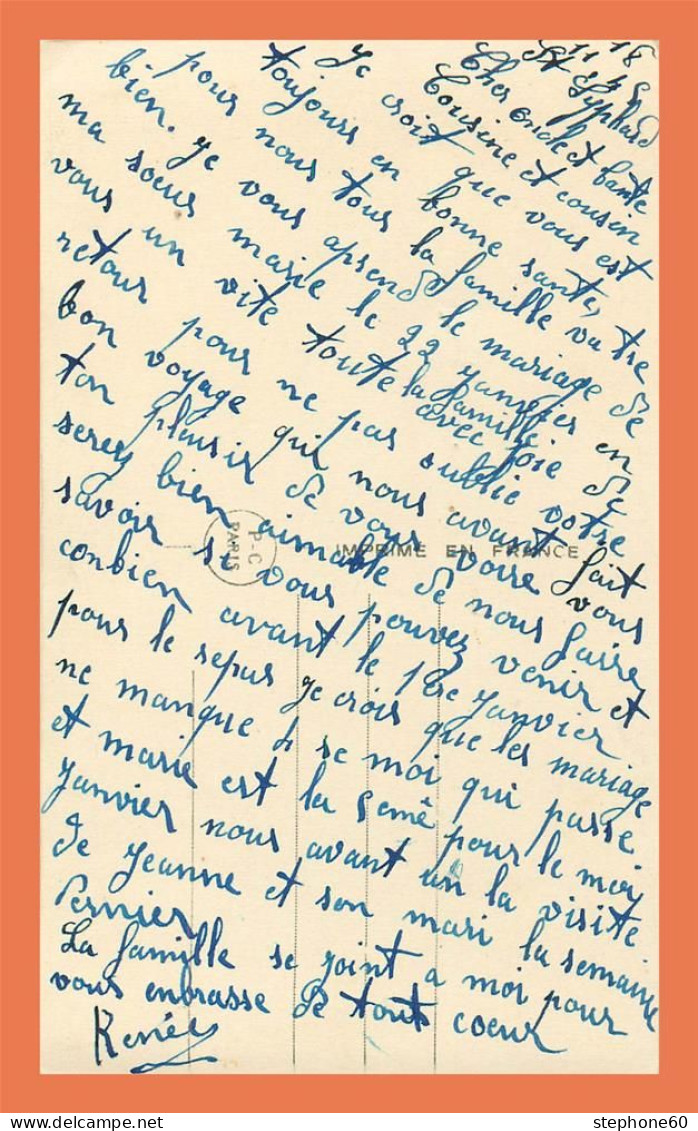 St Syphard
Cher oncle et tante
Cousine et cousin
Je croit que vous est
toujours en bonne santé,
pour nous tous la famille va tre
bien. Je vous aprend le mariage de
ma soeur marie le 22 janvier en
vous un vite toute la famille de
avec joie
retour pour ne pas oublie votre
bon voyage qui nous avant fait
ton plaisir de vous voire vous
serez bien aimable de nous faire
savoir si vous pouvez venir et
conbien avant le 1re janvier
pour le repas je crois que les mariage
ne manque se moi qui passe
et marie est la pour le moi
janvier nous avant un la visite
de Jeanne et son mari la semaine
dernier
La famille se joint a moi pour
vous enbrasse de tout coeur
Renée
P-C
PARIS
IMPRIMÉ EN FRANCE
www.delcampe.net
stephone60